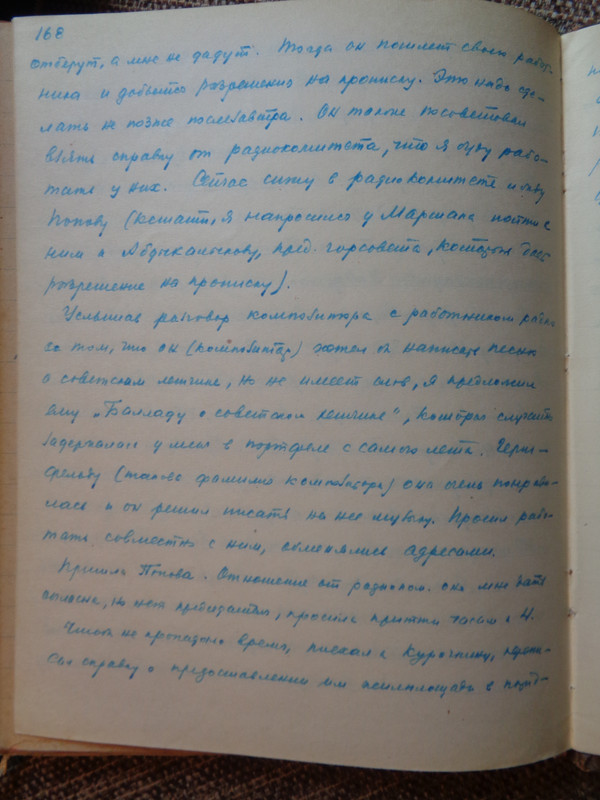 168
отберут, а мне не дадут. Тогда он пошлет своего работ-
ника и добьется разрешения на прописку. Это надо сде-
лать не позже послезавтра. Он также посоветовал
взять справку от радиокомитета, что я буду рабо-
тать у них. Сейчас сижу в радиокомитете и жду
Попову (кстати, я напросился у Маршака пойти с
ним к Абдыкалыкову, пред. горсовета, который дает
разрешение на прописку).
Услышав разговор композитора с работником радио
о том, что он (композитор) хотел бы написать песню
о советском летчике, но не имеет слов, я предложил
ему „Балладу о советском летчике", которая случайно
задержалась у меня в портфеле с самого лета.
(такова фамилия композитора) она очень понрави-
лась и он решил писать на нее музыку. Просил рабо-
тать совместно с ним, обменялись адресами.
Пришла Попова. Отношение от радиоком. она мне дать
согласна, но нет председателя, просила притти часам к 4.
Чтобы не пропадало время, поехал к Курочкину,
сал справку о предоставлении им жилплощади в